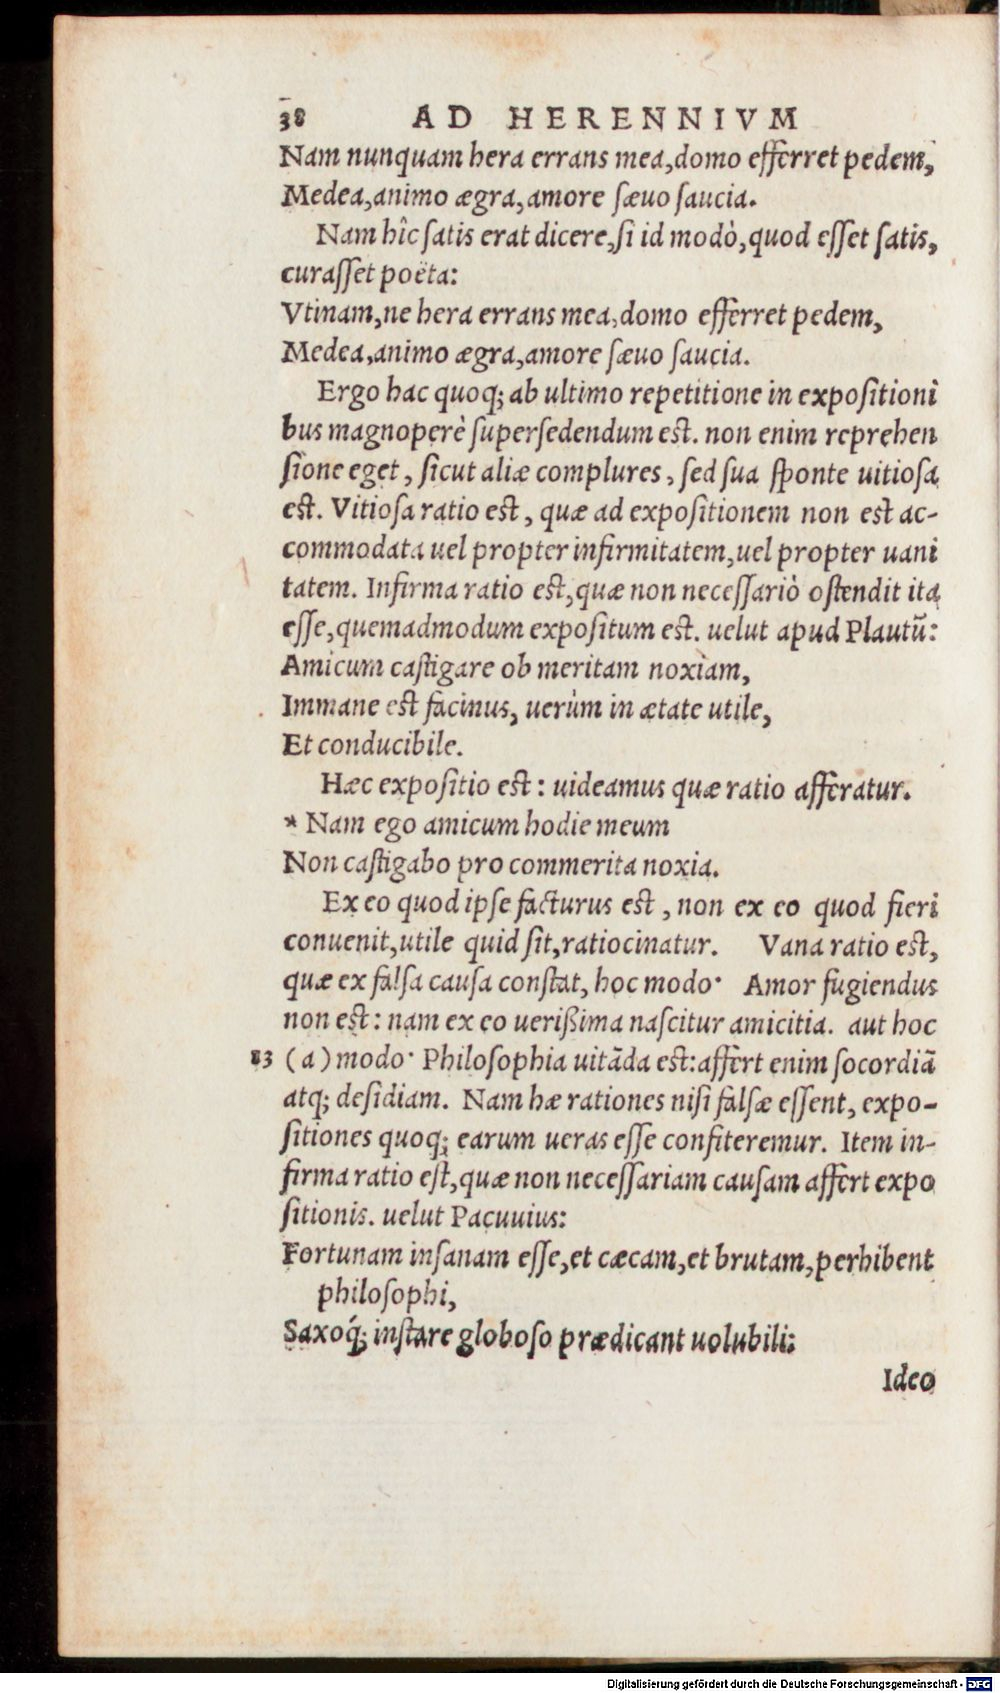 38 AD HERENNIVM
Nam nunquam hera errans mea,domo efferret pedem,
Medea,animo ægra,amore ſæuo ſaucia.
Nam hîc ſatis erat dicere,ſi id modò,quod eſſet ſatis,
curaſſet poëta:
Vtinam,ne hera errans mea,domo efferret pedem,
Medea,animo ægra,amore ſæuo ſaucia.
Ergo hac quoq; ab ultimo repetitione in expoſitioni
bus magnoperè ſuperſedendum eſt. non enim reprehen
ſione eget, ſicut aliæ complures, ſed ſua ſponte uitioſa
eſt. Vitioſa ratio eſt, quæ ad expoſitionem non eſt ac-
commodata uel propter infirmitatem,uel propter uani
tatem. Infirma ratio eſt,quæ non neceſſariò oſtendit ita
eſſe,quemadmodum expoſitum eſt. uelut apud Plautũ:
Amicum caſtigare ob meritam noxiam,
Immane eſt facinus, uerùm in ætate utile,
Et conducibile.
Hæc expoſitio eſt: uideamus quæ ratio afferatur.
* Nam ego amicum hodie meum
Non caſtigabo pro commerita noxia.
Ex eo quod ipſe facturus eſt, non ex eo quod fieri
conuenit,utile quid ſit,ratiocinatur. Vana ratio eſt,
quæ ex falſa cauſa conſtat, hoc modo· Amor fugiendus
non eſt: nam ex eo uerißima naſcitur amicitia. aut hoc
83 (a) modo· Philoſophia uitãda eſt:affert enim ſocordiã
atq; deſidiam. Nam hæ rationes niſi falſæ eſſent, expo-
ſitiones quoq; earum ueras eſſe confiteremur. Item in-
firma ratio eſt,quæ non neceſſariam cauſam affert expo
ſitionis. uelut Pacuuius:
Fortunam inſanam eſſe,et cæcam,et brutam,perhibent
philoſophi,
Saxoq́; inſtare globoſo prædicant uolubili:
Ideo
Digitalisierung gefördert durch die Deutsche Forschungsgemeinschaft - DFG